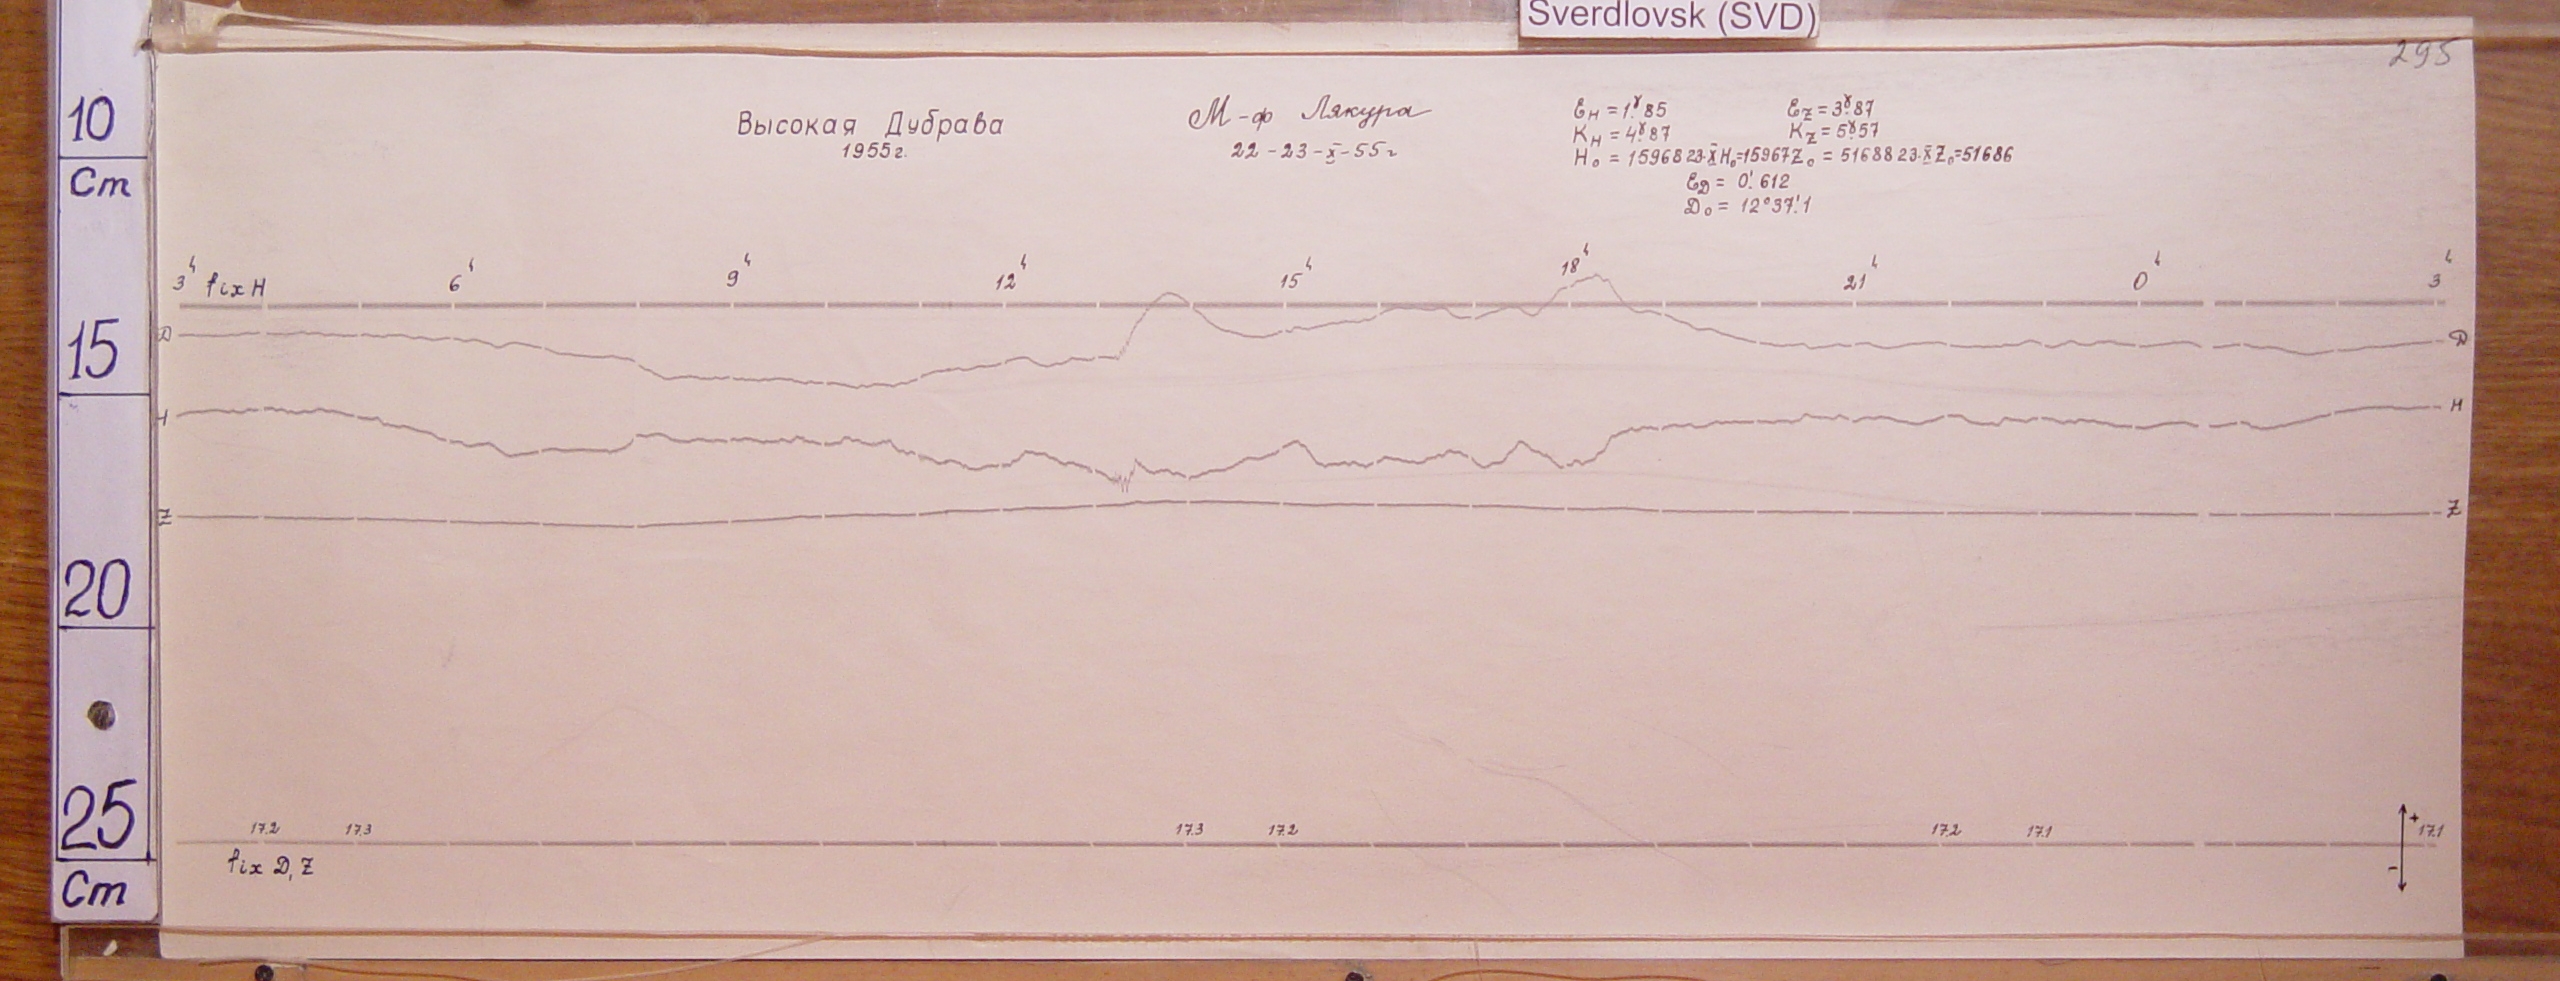 Sverdlovsk (SVD)
295
10
Cm
15
20
25
Cm
Высокая Дубрава
1955г.
М-ф Лякура
22-23-X-55г
ℰH = 1.ˠ85 ℰZ = 3.ˠ87
KH = 4.ˠ87 KZ = 5ˠ57
H₀ = 15968 23.X H₀=15967 Z₀ = 51688 23.X Z₀=51686
ℰD = 0.′612
D₀ = 12°37.′1
3ч fix H 6ч 9ч 12ч 15ч 18ч 21ч 0ч 3ч
D D
H H
Z Z
17.2 17.3 17.3 17.2 17.2 17.1 + 17.1
fix D, Z -